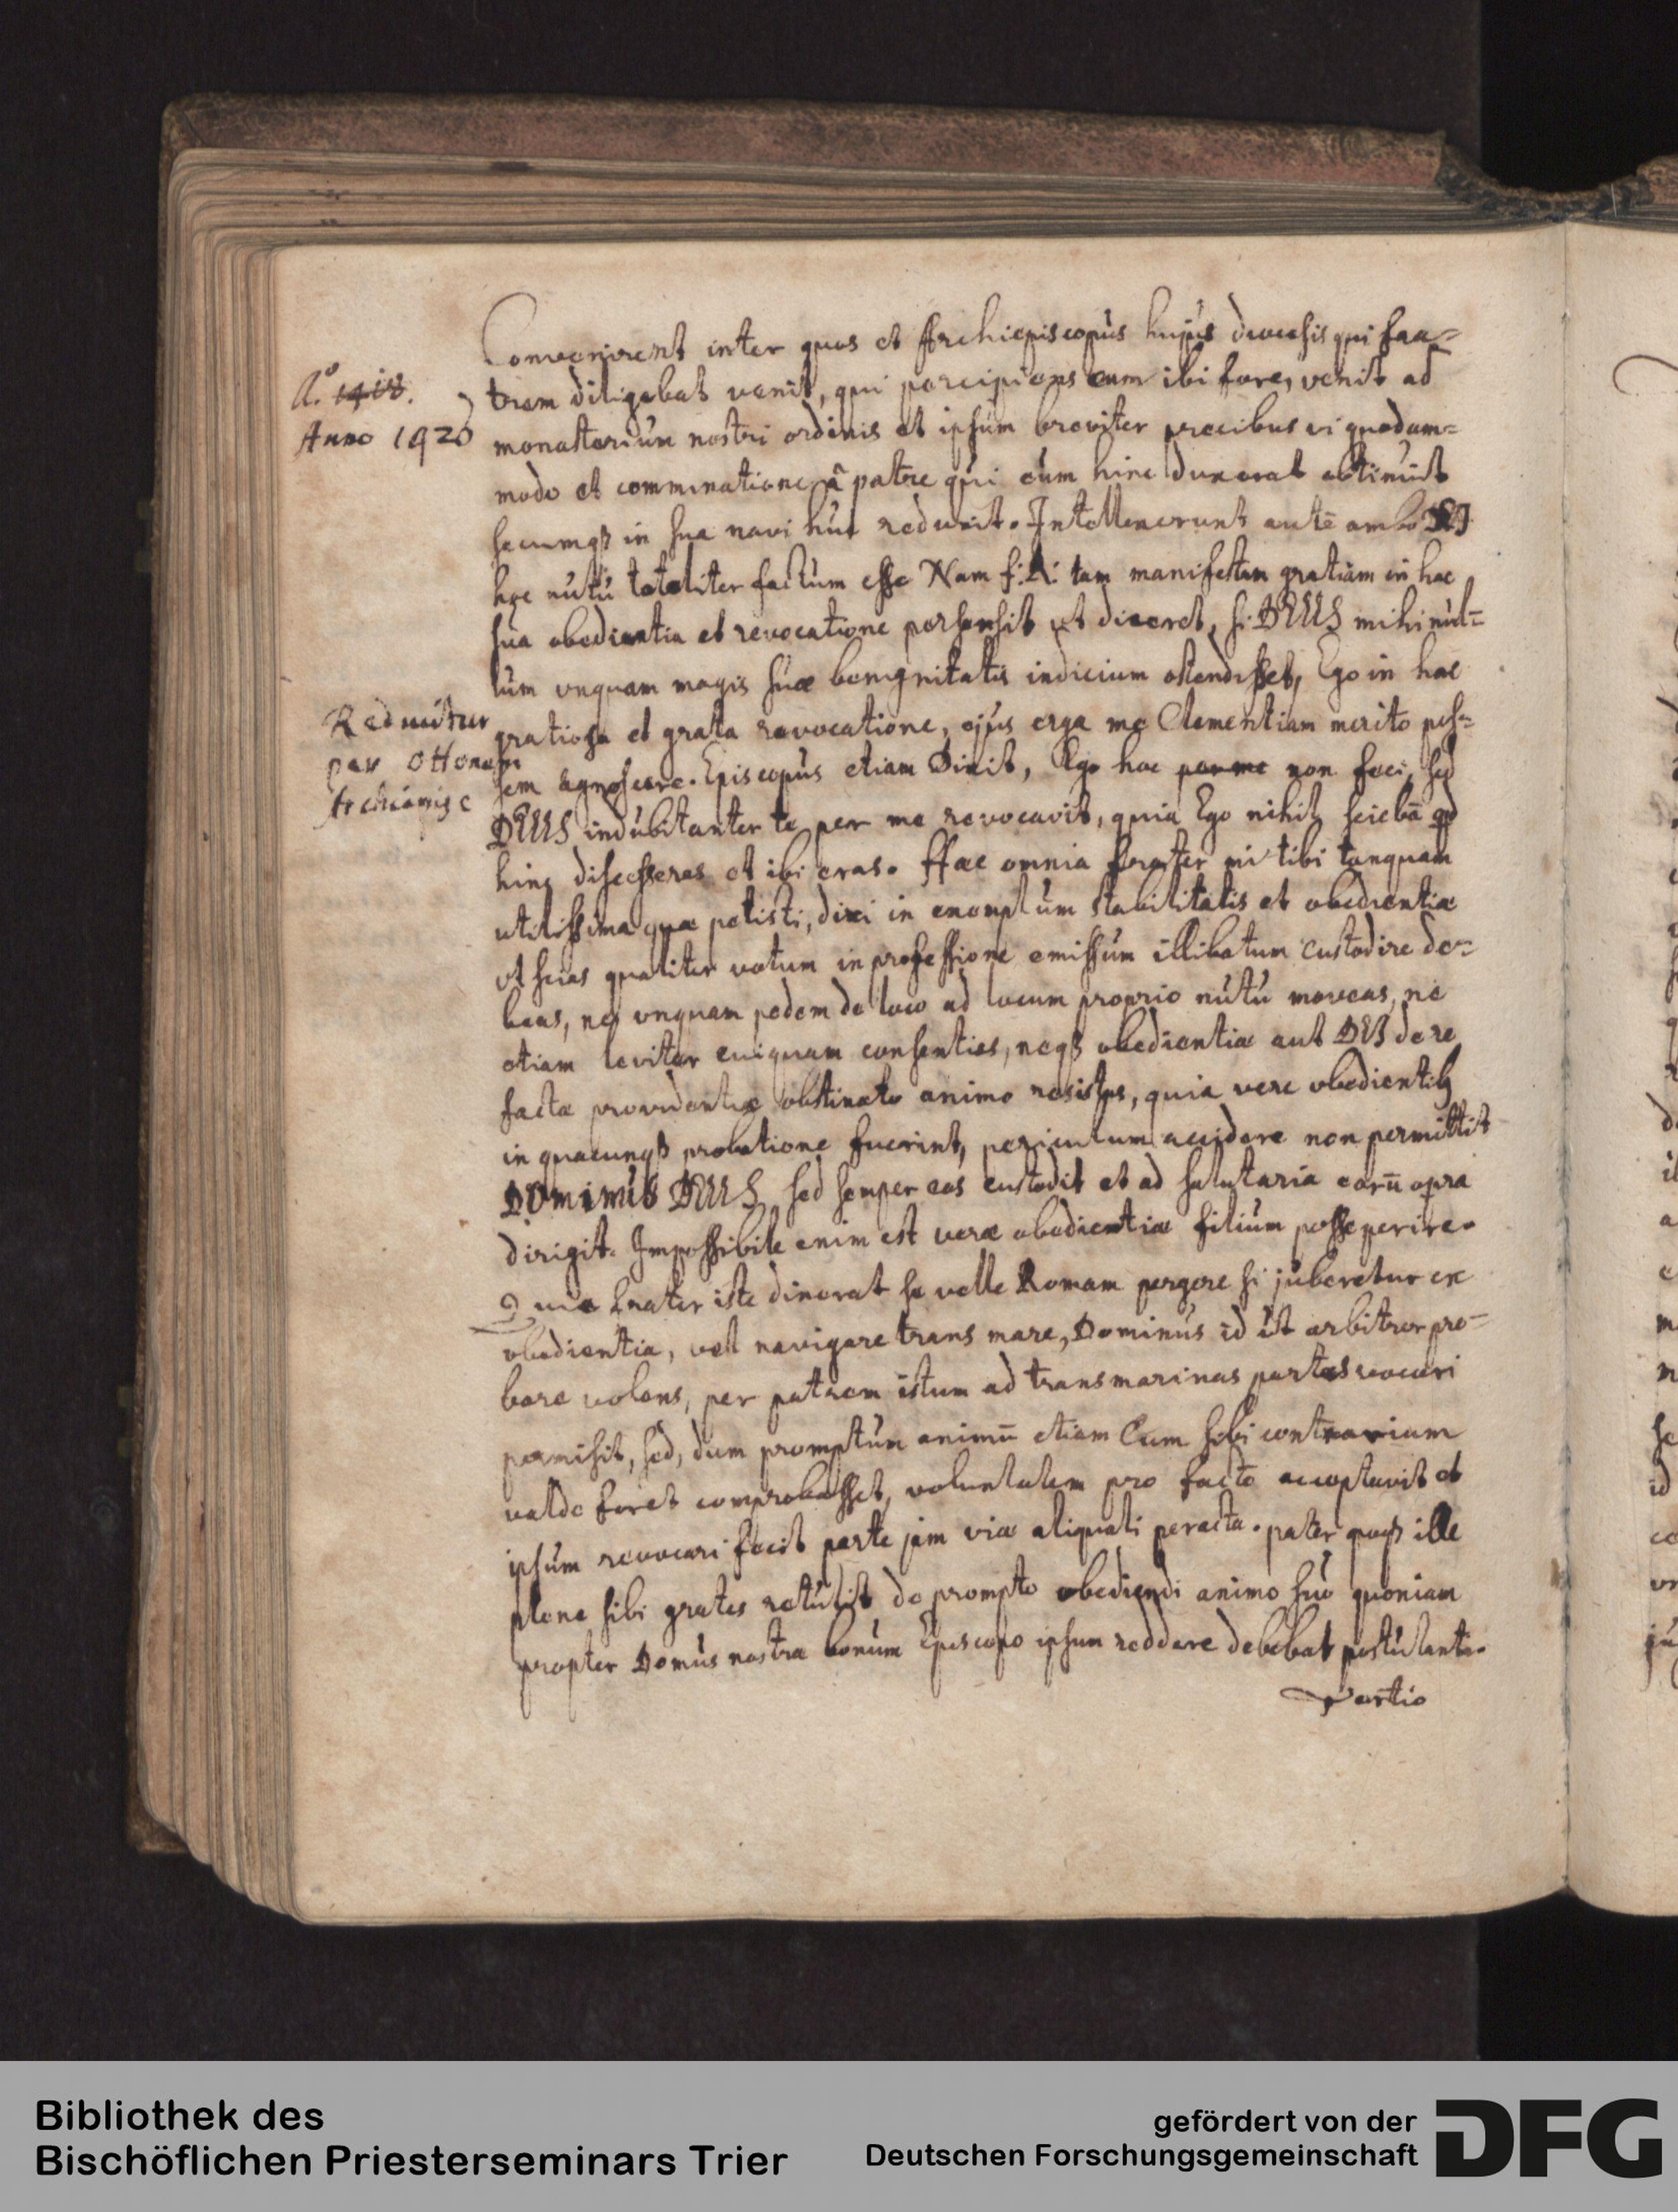 Convenirent inter quos et Archiepiscopus hujus diocesis qui fra=
trem diligebat venit, qui percipiens eum ibi fore, venit ad
monasterium nostri ordinis et ipsum breviter precibus vi quodam=
modo et comminatione à patre qui eum hinc duxerat obtinuit
secumqß in sua navi huc reduxit. Intellexerunt autē ambo DEJ
hoc nutu totaliter factum esse Nam f: A: tam manifestam gratiam in hac
sua obedientia et revocatione persensit ut diceret, si DEUS mihi nul=
lum vnquam magis suæ benignitatis indicium ostendisset, Ego in hac
gratiosa et grata revocatione, ejus erga me Clementiam merito pos=
sem agnoscere. Episcopus etiam Dixit, Ego hoc per me non feci, sed
DEUS indubitanter te per me revocavit, quia Ego nihil sciebā qd
hinc discesseras et ibi eras. Hæc omnia frater mi tibi tanquam
utilissima quæ petisti, dixi in exemplum stabilitatis et obedientiæ
vt scias qualiter votum in professione emissum illibatum custodire de=
beas, ne vnquam pedem de loco ad locum proprio nutu moveas, nec
etiam leviter cuiquam consentias, neqß obedientiæ aut DEJ de re
facta providentiæ obstinato animo resistas, quia vere obedientibß
in quacunqß probatione fuerint, periculum accidere non permittit
DOMINUS DEUS sed semper eos custodit et ad salutaria eorū opera
dirigit. Impossibile enim est veræ obedientiæ filium posse perire.
Quia frater iste dixerat se velle Romam pergere si juberetur ex
obedientia, vel navigare trans mare, Dominus id vt arbitror pro=
bare volens, per patrem istum ad transmarinas partes vocari
permisit, sed, dum promptum animū etiam Cum sibi contrarium
valde foret comprobasset, voluntatem pro facto acceptavit et
ipsum revocari fecit parte jam viæ aliquali peracta. pater quoqß ille
plene sibi grates retulit de prompto obediendi animo suo quoniam
propter Domus nostræ bonum Episcopo ipsum reddere debebat postulante.
Tertio
A.º 1418.
Anno 1420
Reducitur
per Ottonem
Archiepisc
Bibliothek des
Bischöflichen Priesterseminars Trier
gefördert von der
Deutschen Forschungsgemeinschaft
DFG